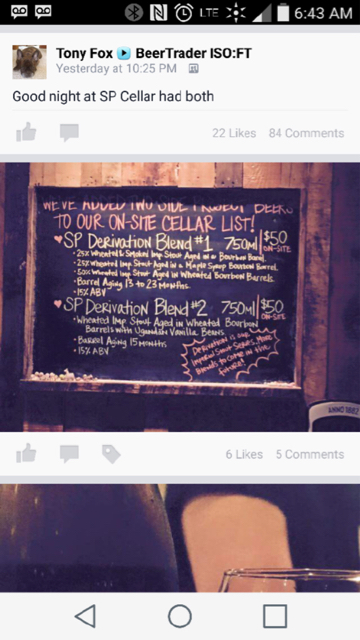 LTE 6:43 AM
Tony Fox ▶ BeerTrader ISO:FT
Yesterday at 10:25 PM
Good night at SP Cellar had both
22 Likes 84 Comments
WE'VE ADDED TWO SIDE PROJECT BEERS
TO OUR ON-SITE CELLAR LIST!
SP Derivation Blend #1 750ml $50
ON-SITE
• 25% Wheated & Smoked Imp Stout Aged in a Bourbon Barrel
• 25% Wheated Imp Stout Aged in a Maple Syrup Bourbon Barrel
• 50% Wheated Imp Stout Aged in Wheated Bourbon Barrels
• Barrel Aging 13 to 23 Months
• 15% ABV
SP Derivation Blend #2 750ml $50
ON-SITE
• Wheated Imp Stout Aged in Wheated Bourbon
Barrels with Ugandan Vanilla Beans
• Barrel Aging 15 Months
• 15% ABV
Derivation is our
Imperial Stout Series. More
Blends to come in the
future!
6 Likes 5 Comments